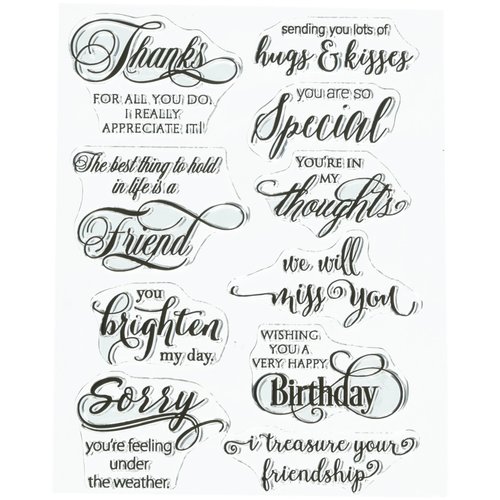 Thanks
FOR ALL YOU DO.
I REALLY
APPRECIATE IT!
The best thing to hold
in life is a
Friend
you
brighten
my day.
Sorry
you're feeling
under
the weather.
sending you lots of
hugs & kisses
you are so
Special
YOU'RE IN
MY
thoughts
we will
miss you
WISHING
YOU A
VERY HAPPY
Birthday
i treasure your
friendship